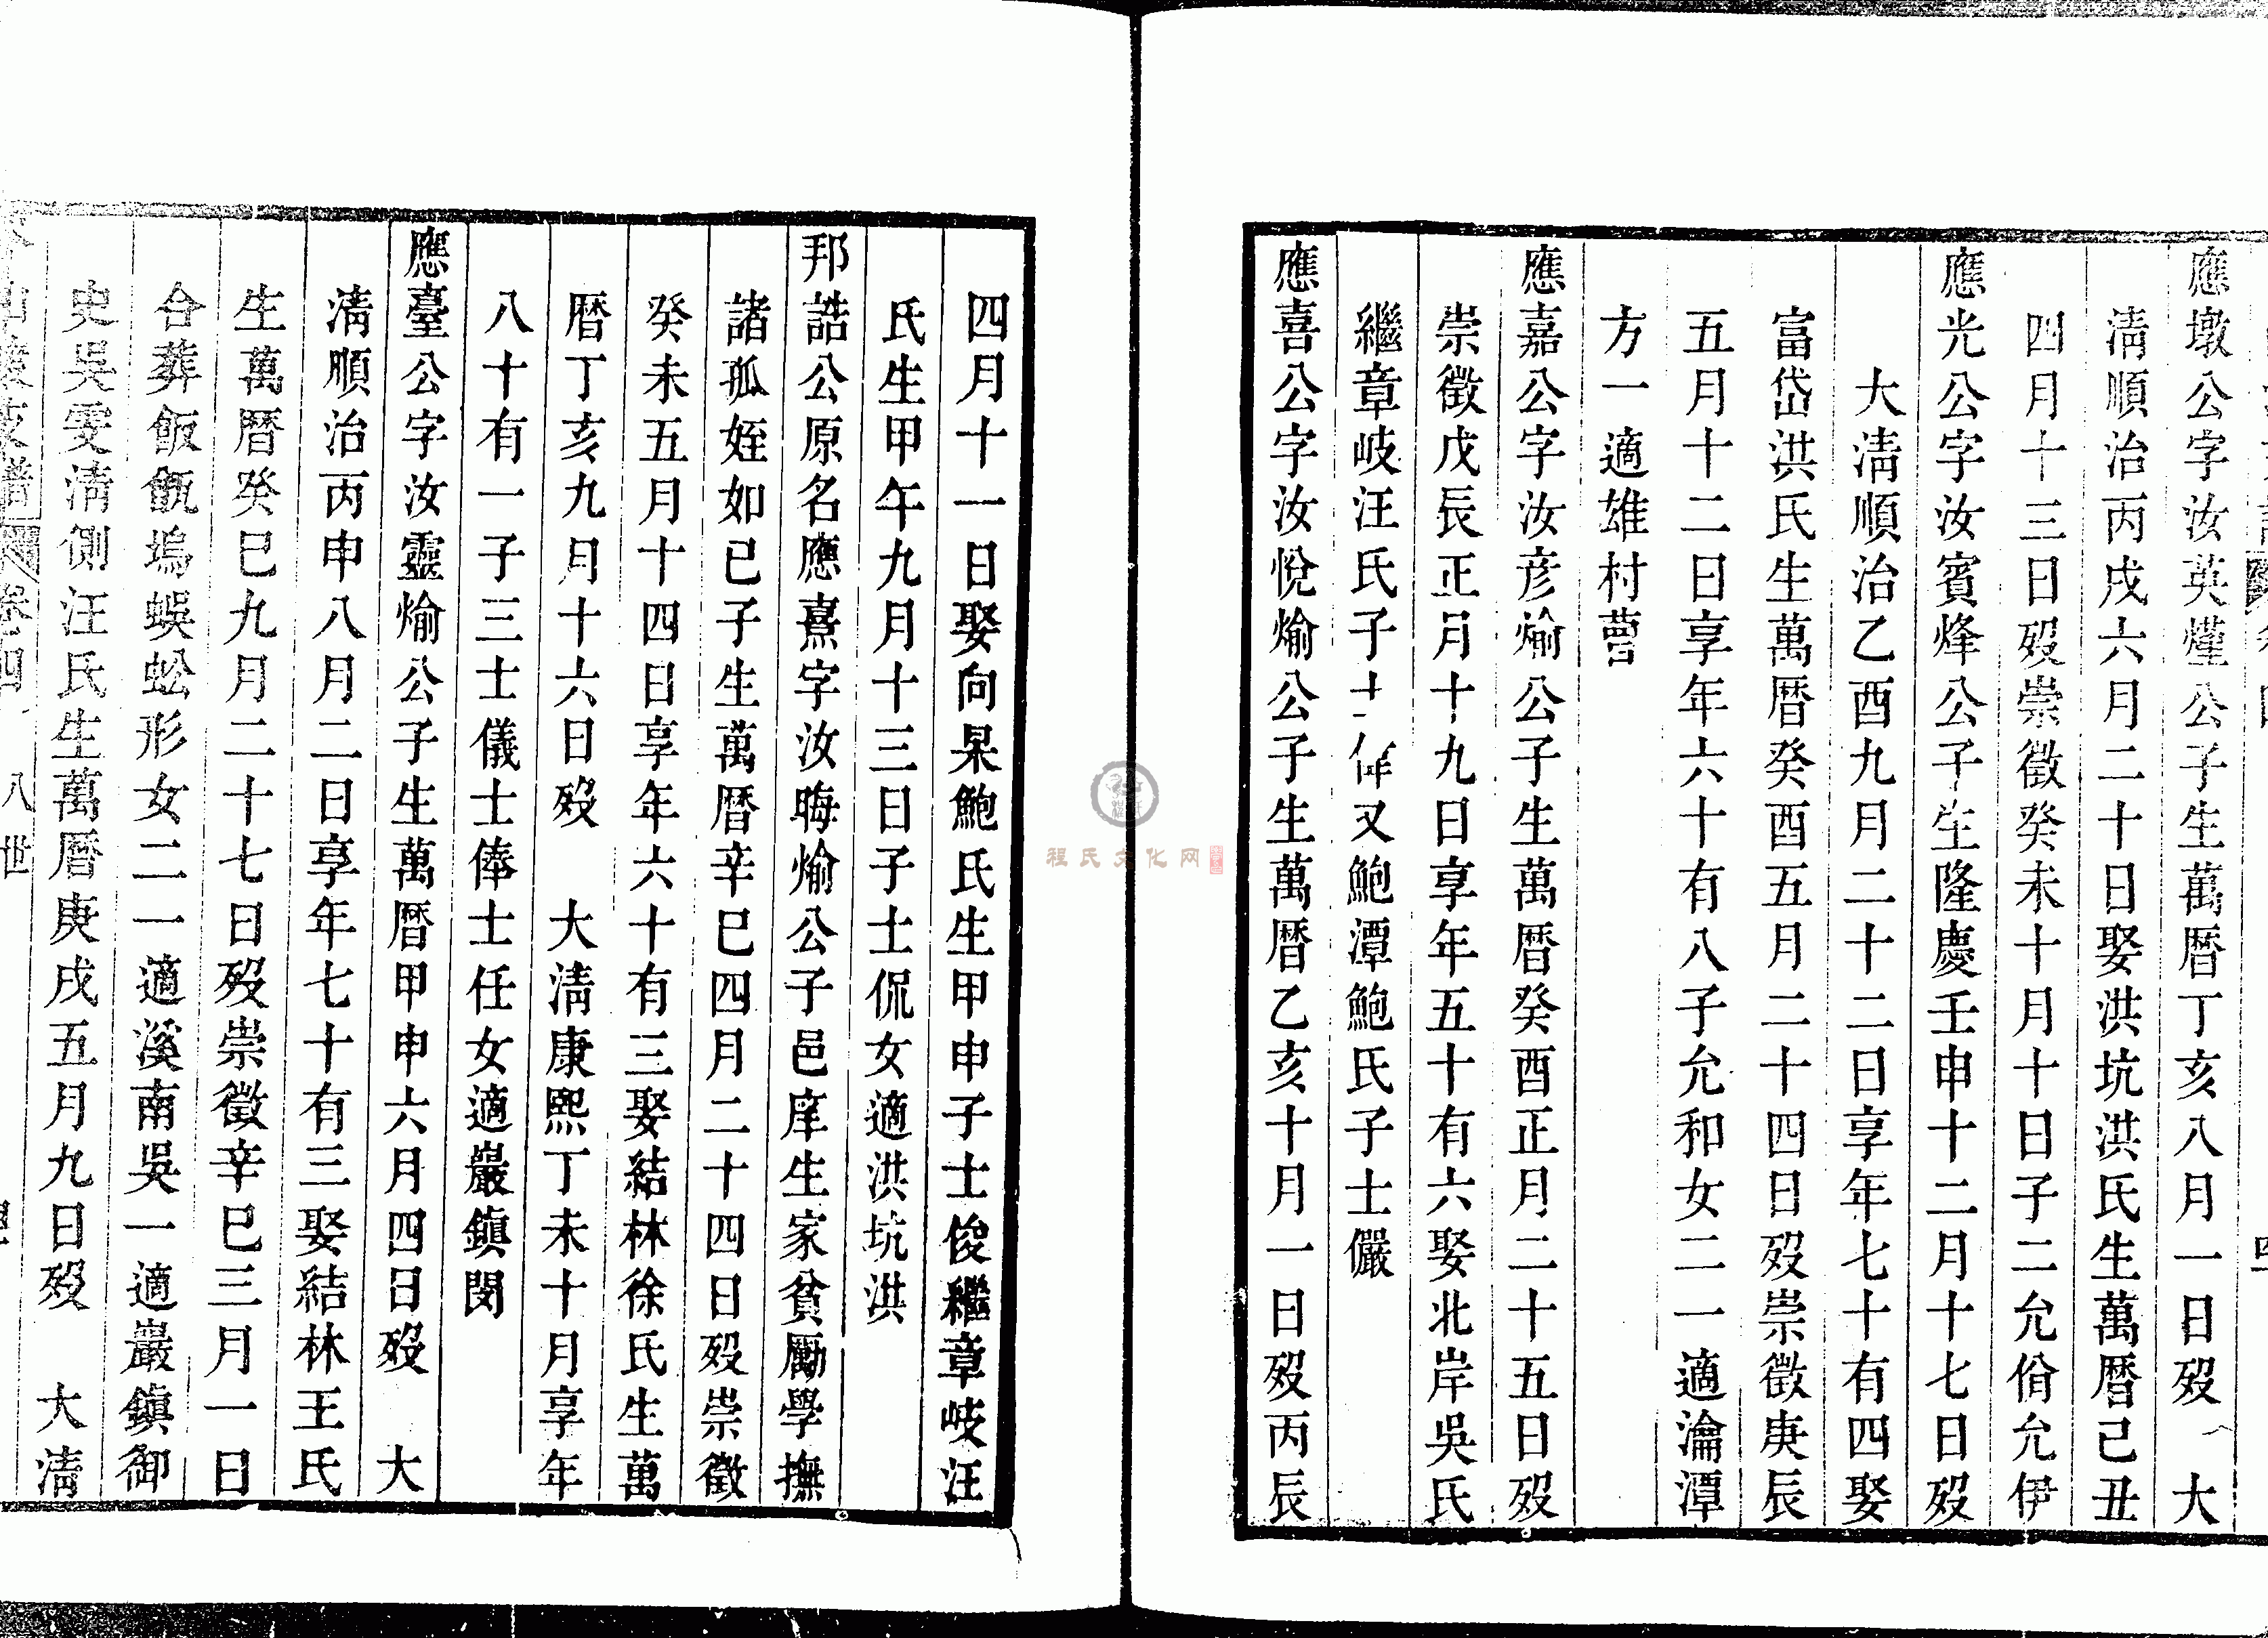 應墩公字汝英爟公子生萬曆丁亥八月一日歿　大
清順治丙戌六月二十日娶洪坑洪氏生萬曆己丑
四月十三日歿崇徵癸未十月十日子二允佾允伊
應光公字汝賓烽公子生隆慶壬申十二月十七日歿
大清順治乙酉九月二十二日享年七十有四娶
富岱洪氏生萬曆癸酉五月二十四日歿崇徵庚辰
五月十二日享年六十有八子允和女二一適瀹潭
方一適雄村曹
應嘉公字汝彥煰公子生萬曆癸酉正月二十五日歿
崇徵戊辰正月十九日享年五十有六娶北岸吳氏
繼章岐汪氏子士又鮑潭鮑氏子士儼
應喜公字汝悅煰公子生萬曆乙亥十月一日歿丙辰
四月十一日娶向杲鮑氏生甲申子士俊繼章岐汪
氏生甲午九月十三日子士侃女適洪坑洪
邦誥公原名應熹字汝晦煰公子邑庠生家貧勵學撫
諸孤姪如已子生萬曆辛巳四月二十四日歿崇徵
癸未五月十四日享年六十有三娶結林徐氏生萬
曆丁亥九月十六日歿　大清康熙丁未十月享年
八十有一子三士儀士俸士任女適巖鎮閔
應臺公字汝靈煰公子生萬曆甲申六月四日歿　大
清順治丙申八月二日享年七十有三娶結林王氏
生萬曆癸巳九月二十七日歿崇徵辛巳三月一日
合葬飯甑塢蜈蚣形女二一適溪南吳一適巖鎮御
史吳雯清側汪氏生萬曆庚戌五月九日歿　大清
支譜　卷四　八世
程氏文化网